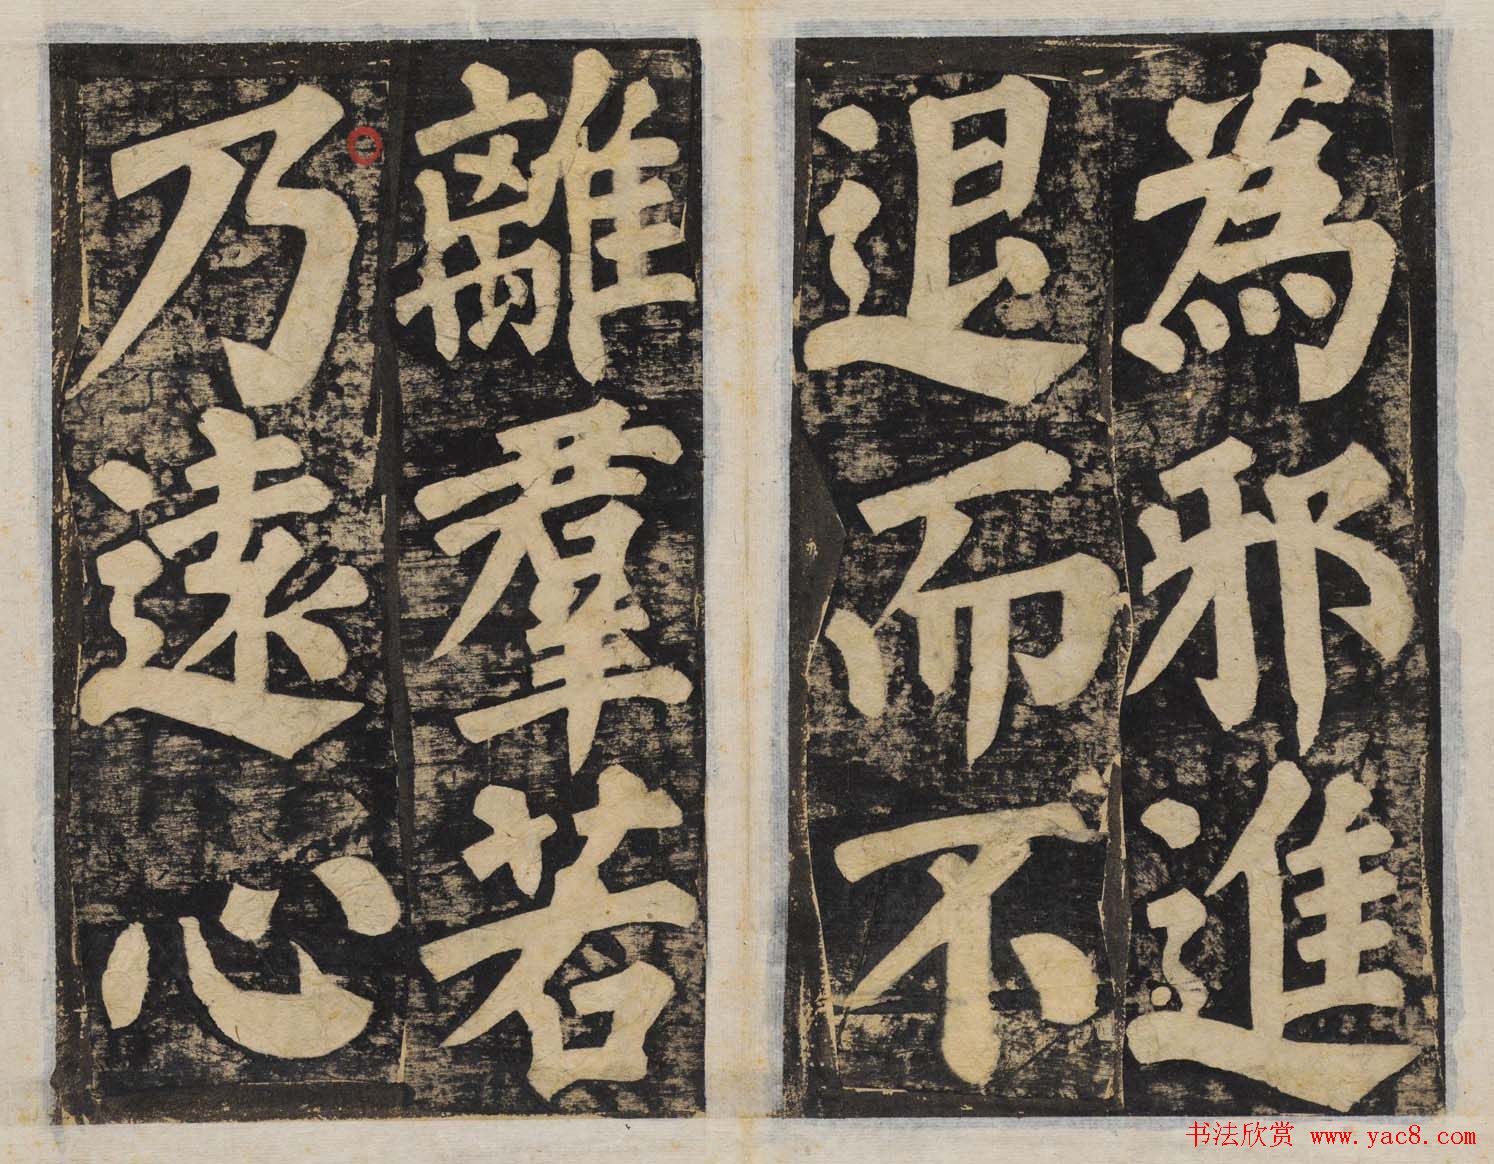 為邪進
退而不
離羣若
乃遠心
书法欣赏 www.yac8.com